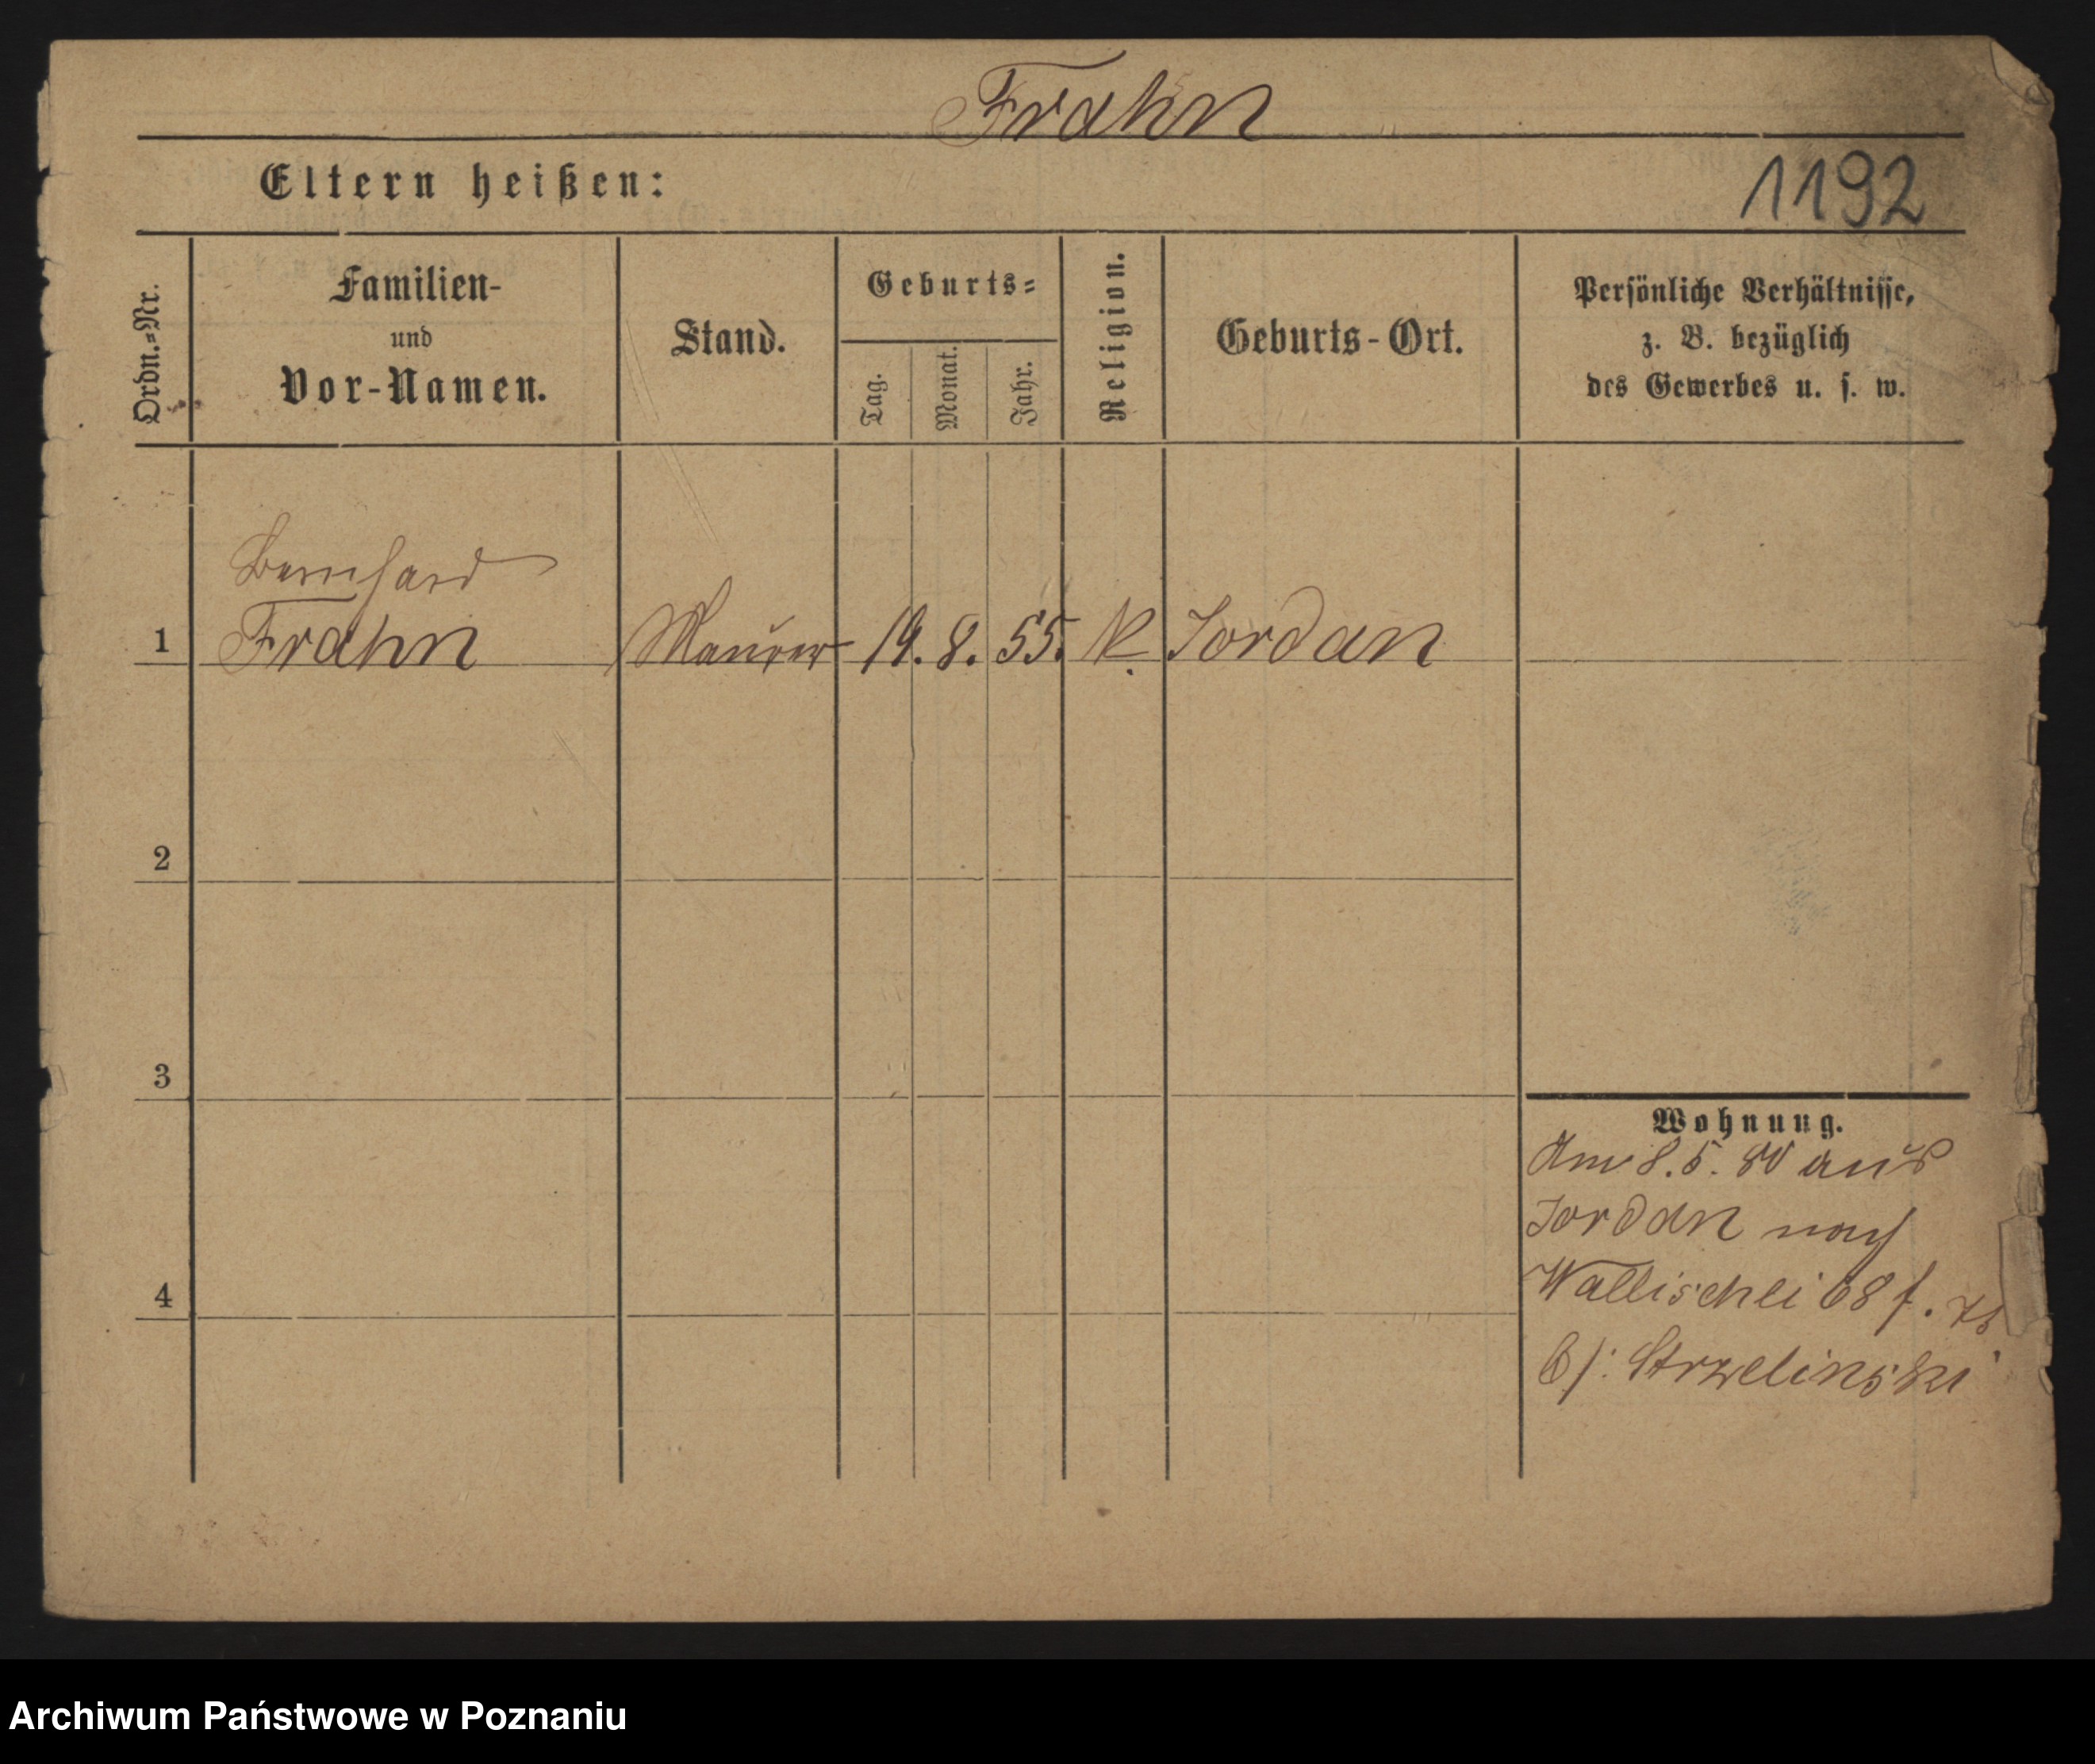 Frahn
Eltern heißen:
1192
Ordn.=Nr.
Familien-
und
Vor-Namen.
Stand.
Geburts=
Tag.
Monat.
Jahr.
Religion.
Geburts-Ort.
Persönliche Verhältnisse,
z. B. bezüglich
des Gewerbes u. s. w.
Bernhard
1 Frahn Maurer 19. 8. 55. K. Jordan
2
3
Wohnung.
Am 8. 5. 80 aus
Jordan nach
Wallischei 68 f.
4
b/: Strzelinski
Archiwum Państwowe w Poznaniu